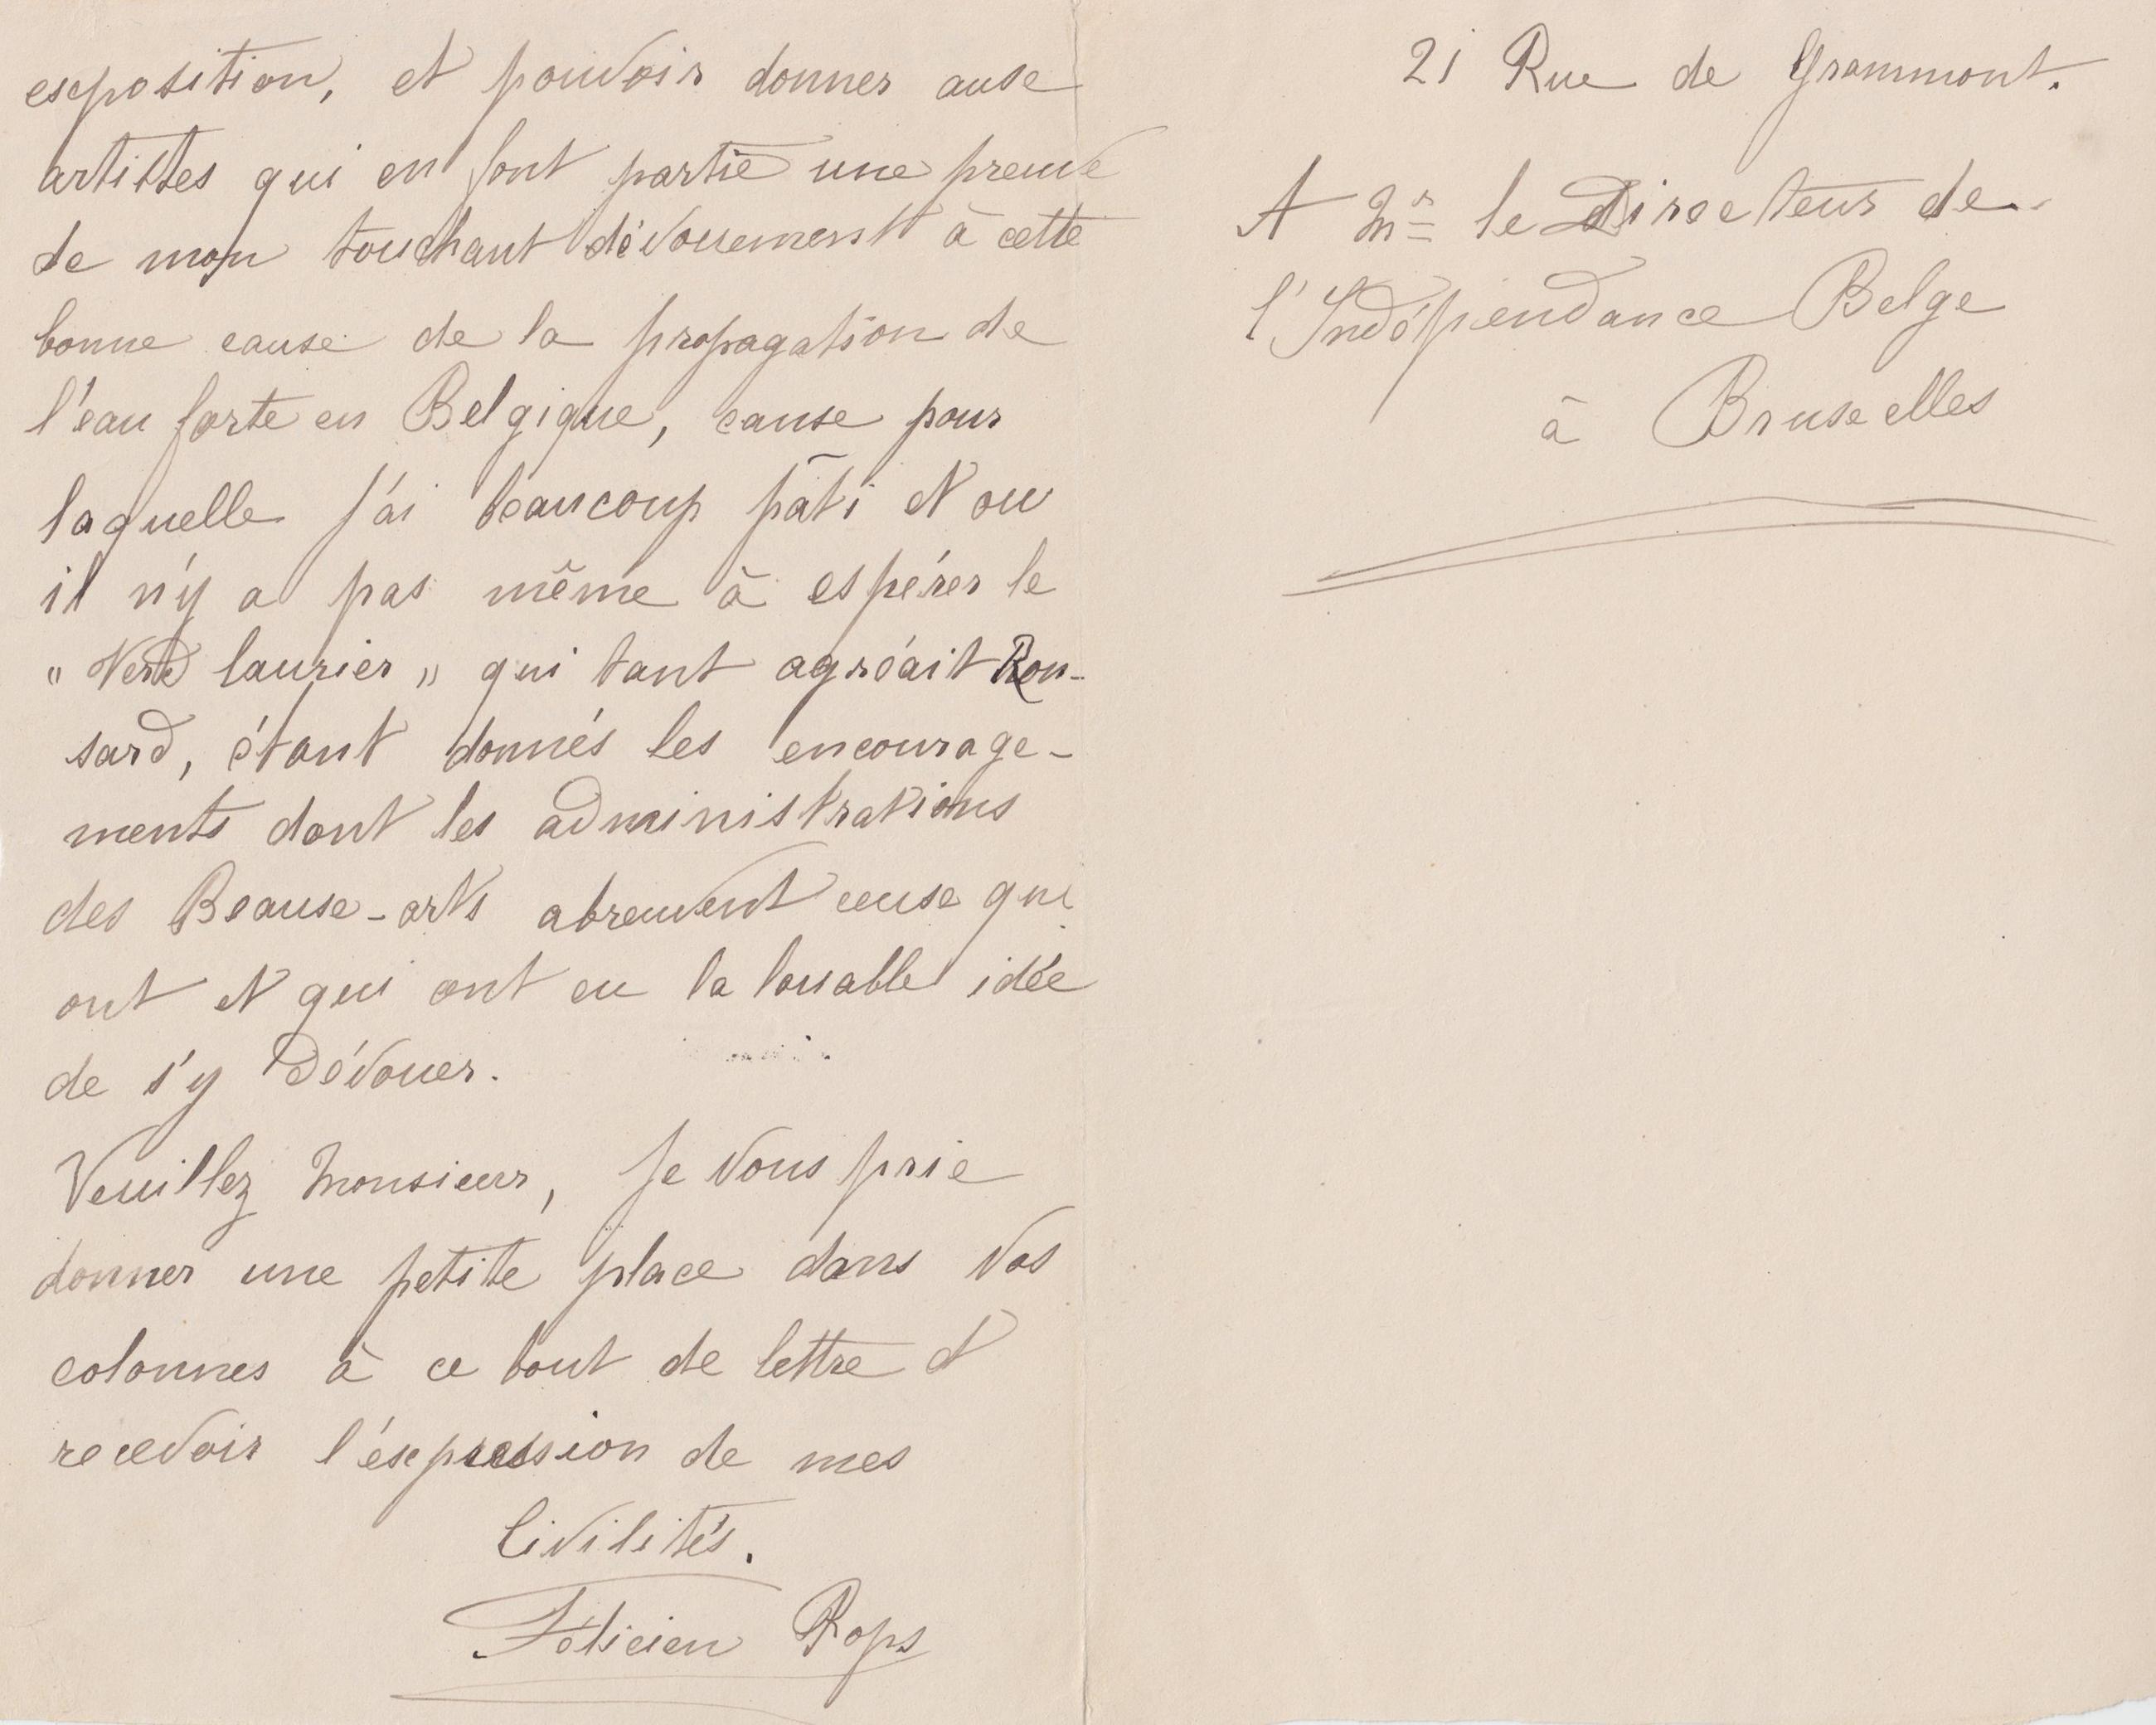 exposition, et pouvoir donner aux
artistes qui en font partie une preuve
de mon touchant dévouement à cette
bonne cause de la propagation de
l'eau forte en Belgique, cause pour
laquelle j'ai beaucoup pâti et ou
il n'y a pas même à espérer le
« Verd laurier » qui tant agréait Ron-
sard, étant donnés les encourage-
ments dont les administrations
des Beaux-arts abreuvent ceux qui
ont et qui ont eu la louable idée
de s'y dévouer.
Veuillez Monsieur, je vous prie
donner une petite place dans vos
colonnes à ce bout de lettre et
recevoir l'éxpression de mes
Civilités.
Félicien Rops
21 Rue de Grammont.
A Mr le Directeur de
l'Indépendance Belge
à Bruxelles